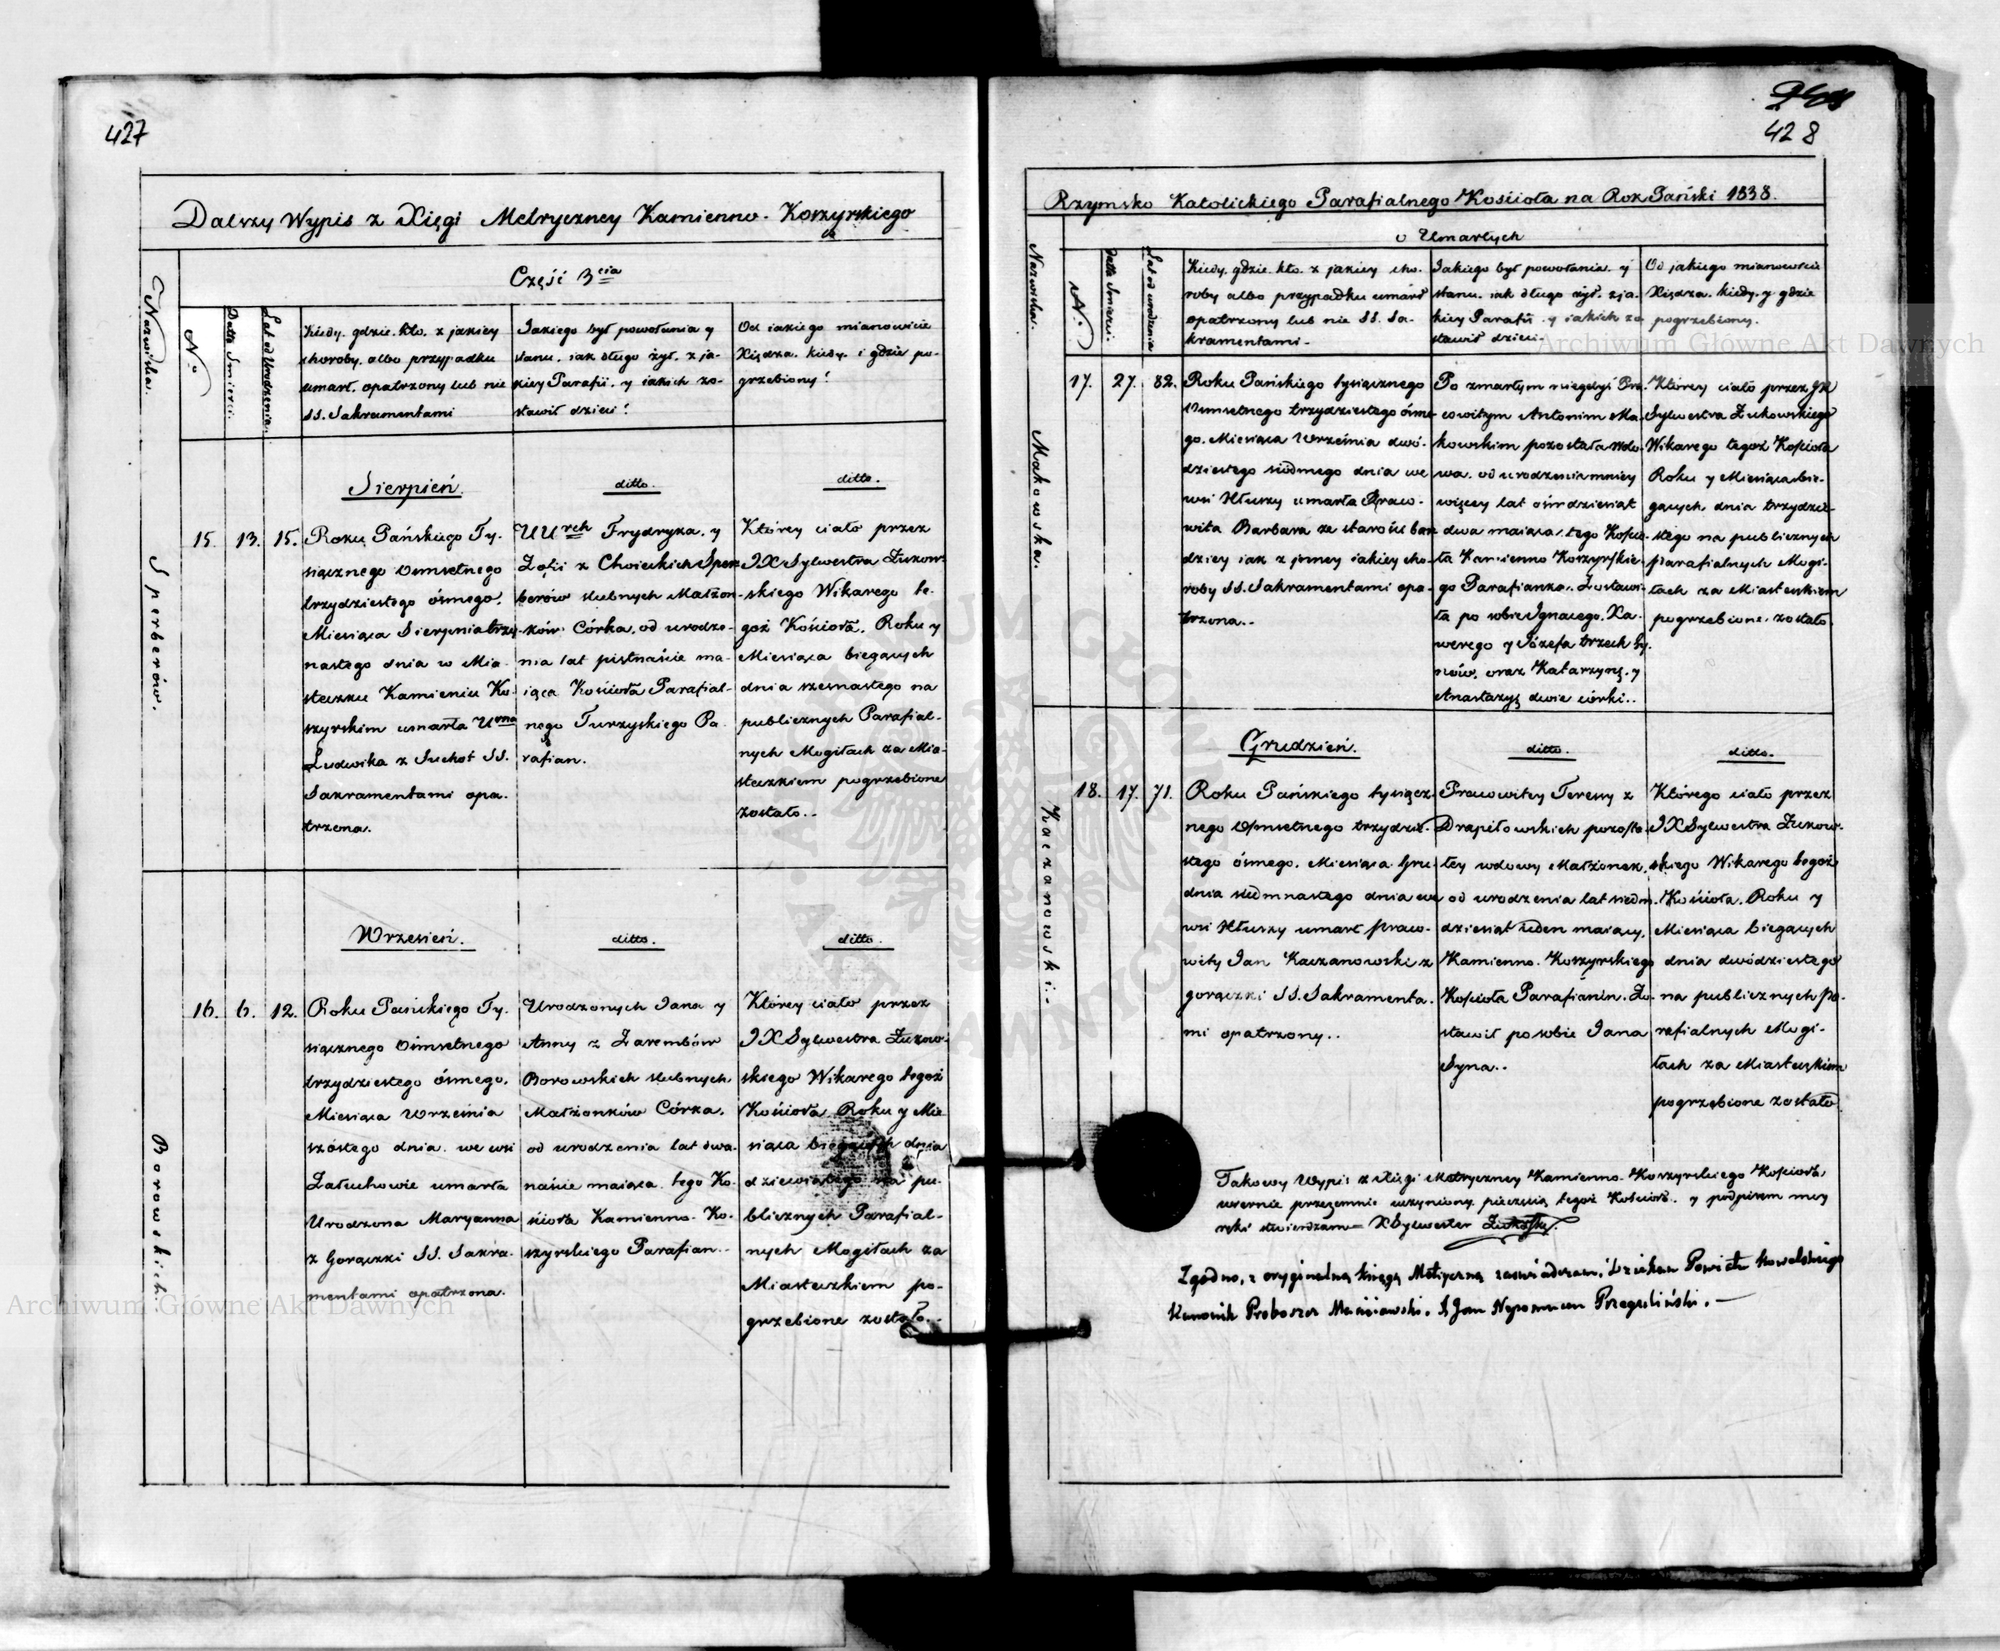 427
Dalszy Wypis z Xięgi Metryczney Kamienno-Koszyrskiego
Część 3cia
Nazwiska.
N.o
Datta Smierci.
Lat od Urodzenia.
Kiedy, gdzie, kto, z jakiey
choroby, albo przypadku
umarł, opatrzony lub nie
SS. Sakramentami
Jakiego był powołania y
stanu, iak długo żył, z ja-
kiey Parafii, y iakich zo-
stawił dzieci?
Od iakiego mianowicie
Xiędza, kiedy i gdzie po-
grzebiony?
Sierpień.
ditto.
ditto.
Sperberów.
15.
13.
15.
Roku Pańskiego Ty-
siącznego Osmsetnego
trzydziestego ósmego,
Miesiąca Sierpnia trzy-
nastego dnia w Mia-
steczku Kamieniu Ko-
szyrskim umarła Urna
Ludwika z Suchot SS.
Sakramentami opa-
trzona.
UUrch Frydryka, y
Zofii z Choieckich Sper-
berów slubnych Małżon-
ków Córka, od urodze-
nia lat pietnaście ma-
iąca Kościoła Parafial-
nego Turzyskiego Pa-
rafian.
Którey ciało przez
JX Sylwestra Żukow-
skiego Wikarego te-
goż Kościoła, Roku y
Miesiąca bieguących
dnia szesnastego na
publicznych Parafial-
nych Mogiłach za Mia-
steczkiem pogrzebione
zostało..
Wrzesień.
ditto.
ditto.
Borowskich.
16.
6.
12.
Roku Pańskiego Ty-
siącznego Osmsetnego
trzydziestego ósmego,
Miesiąca Września
szóstego dnia we wsi
Załuchowie umarła
Urodzona Maryanna
z Gorączki SS. Sakra-
mentami opatrzona.
Urodzonych Jana y
Anny z Zarembów
Borowskich slubnych
Małżonków Córka,
od urodzenia lat dwa-
naście maiąca, tego Ko-
ścioła Kamienno-Ko-
szyrskiego Parafian..
Którey ciało przez
JX Sylwestra Żukow-
skiego Wikarego tegoż
Kościoła, Roku y Mie-
siąca bieguących dnia
dziewiątego na pu-
blicznych Parafial-
nych Mogiłach za
Miasteczkiem po-
grzebione zostało..
428
Rzymsko Katolickiego Parafialnego Kościoła na Rok Pański 1838.
o Umarłych
Nazwiska.
N.
Datta Smierci.
Lat od urodzenia
Kiedy, gdzie, kto, z jakiey cho-
roby albo przypadku umarł
opatrzony lub nie SS. Sa-
kramentami.
Jakiego był powołania, y
stanu, iak długo żył, z ja-
kiey Parafii, y iakich zo-
stawił dzieci.
Od jakiego mianowicie
Xiędza, kiedy, y gdzie
pogrzebiony.
Makowska.
17.
27.
82.
Roku Pańskiego tysiącznego
Osmsetnego trzydziestego ósme-
go, Miesiąca Września dwó-
dziestego siódmego dnia we
wsi Hłuszy umarła Praco-
wita Barbara ze starości bar-
dziey iak z inney iakiey cho-
roby SS. Sakramentami opa-
trzona..
Po zmarłym niegdyś Pra-
cowitym Antonim Ma-
kowskim pozostała Wdo-
wa, od urodzenia mniey
więcey lat ośmdziesiąt
dwa maiąca, tego Kościo-
ła Kamienno Koszyrskie-
go Parafianka. Zostawi-
ła po sobie Ignacego, Xa-
werego y Józefa trzech Sy-
nów, oraz Katarzynę, y
Anastazyę dwie córki..
Którey ciało przez JX
Sylwestra Żukowskiego
Wikarego tegoż Kościoła
Roku y Miesiąca bie-
guących, dnia trzydzie-
stego na publicznych
parafialnych Mogi-
łach za Miasteczkiem
pogrzebione zostało.
Grudzień.
ditto.
ditto.
Kaczanowski.
18.
17.
71.
Roku Pańskiego tysiącz-
nego Osmsetnego trzydzie-
stego ósmego, Miesiąca Gru-
dnia siedmnastego dnia we
wsi Hłuszy umarł praco-
wity Jan Kaczanowski z
gorączki SS. Sakramenta-
mi opatrzony..
Pracowitey Teressy z
Drapiłowskich pozosta-
łey wdowy Małżonek,
od urodzenia lat siedm-
dziesiąt ieden maiący,
Kamienno-Koszyrskiego
Kościoła Parafianin. Zo-
stawił po sobie Jana
Syna..
Którego ciało przez
JX Sylwestra Żukow-
skiego Wikarego tegoż
Kościoła, Roku y
Miesiąca bieguących
dnia dwódziestego
na publicznych Pa-
rafialnych Mogi-
łach za Miasteczkiem
pogrzebione zostało
Takowy Wypis z Xięgi Metryczney Kamienno-Koszyrskiego Kościoła
wiernie przezemnie uczyniony, pieczęcią tegoż Kościoła, y podpisem mey
ręki stwierdzam X Sylwester Żukowski
Zgodno, z oryginalną księgą Metryczną zaświadczam, Dziekan Powiatu Kowelskiego
Kanonik Proboszcz Maciiowski, X Jan Nepomucen Przegaliński.
Archiwum Główne Akt Dawnych
Archiwum Główne Akt Dawnych